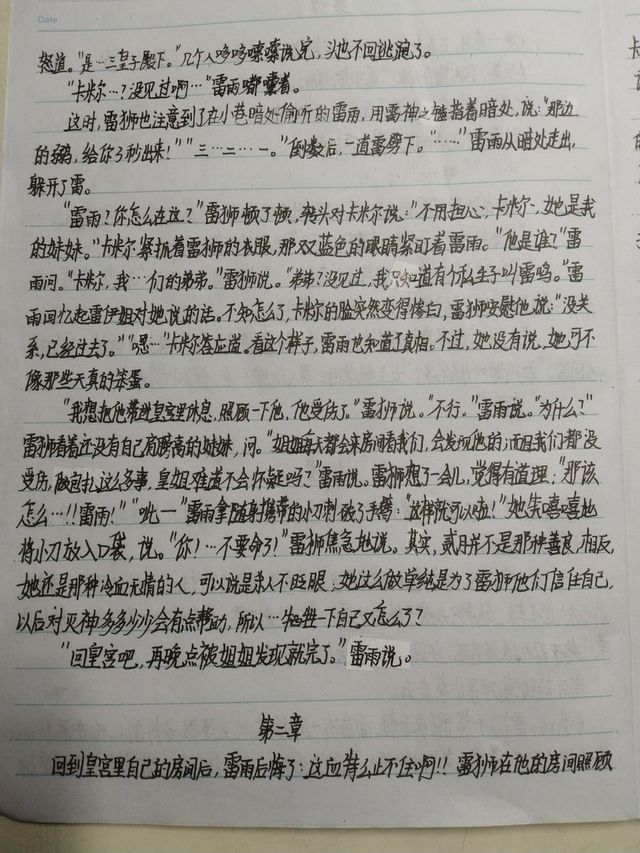 Date
怒道。“是…三皇子殿下。”几个人哆哆嗦嗦说完，头也不回逃跑了。
“卡米尔…？没见过啊…”雷雨嘟囔着。
这时，雷狮也注意到了在小巷暗处偷听的雷雨，用雷神之锤指着暗处，说：“那边
的弱鸡，给你3秒出来！”“三…二…一。”倒数后，一道雷劈下。“……”雷雨从暗处走出，
躲开了雷。
“雷雨？你怎么在这？”雷狮顿了顿，转头对卡米尔说：“不用担心，卡米尔，她是我
的妹妹。”卡米尔紧抓着雷狮的衣服，那双蓝色的眼睛紧盯着雷雨。“他是谁？”雷
雨问。“卡米尔，我…们的弟弟。”雷狮说。“弟弟？没见过，我只知道有个私生子叫雷鸣。”雷
雨回忆起雷伊姐对她说的话。不知怎么了，卡米尔的脸突然变得惨白，雷狮安慰他说：“没关
系，已经过去了。”“嗯…”卡米尔答应道。看这个样子，雷雨也知道了真相。不过，她没有说，她可不
像那些天真的笨蛋。
“我想把他带进皇宫里休息，照顾一下他，他受伤了。”雷狮说。“不行。”雷雨说。“为什么？”
雷狮看着还没有自己肩膀高的妹妹，问。“姐姐每天都会来房间看我们，会发现他的；而且我们都没
受伤，做包扎这么多事，皇姐难道不会怀疑吗？”雷雨说。雷狮想了一会儿，觉得有道理：“那该
怎么…！！雷雨！”“呲—”雷雨拿随身携带的小刀刺破了手臂：“这样就可以啦！”她笑嘻嘻地
将小刀放入口袋，说。“你！…不要命了！”雷狮焦急地说。其实，贰月并不是那种善良，相反，
她还是那种冷血无情的人，可以说是杀人不眨眼，她这么做单纯是为了雷狮他们信任自己，
以后对灭神多多少少会有点帮助，所以…牺牲一下自己又怎么了？
“回皇宫吧，再晚点被姐姐发现就完了。”雷雨说。
第二章
回到皇宫里自己的房间后，雷雨后悔了：这血有么止不住啊！！雷狮在他的房间照顾